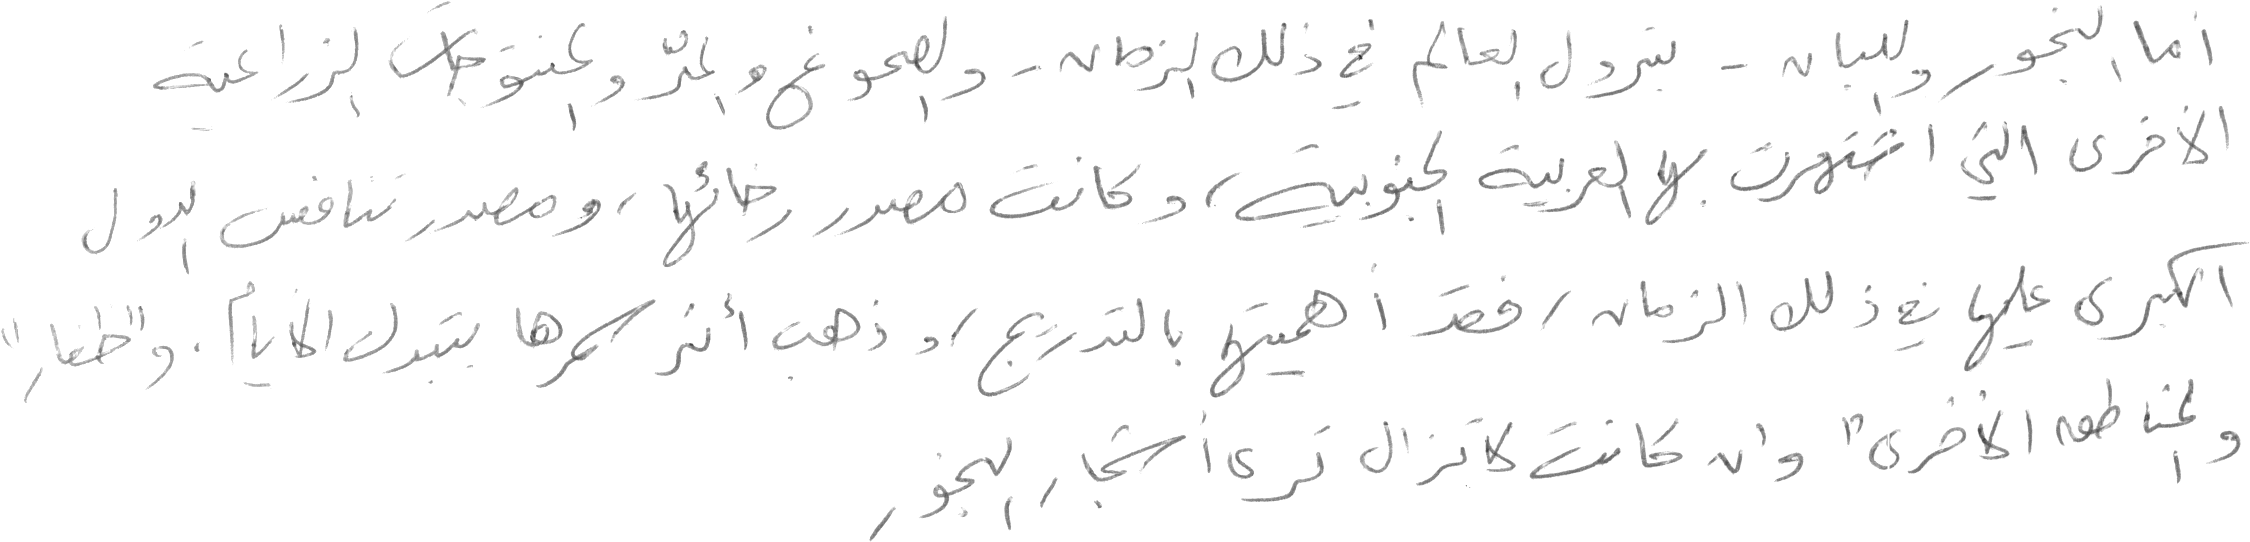 أما البخور واللبان - بترول العالم في ذلك الزمان - والصموغ والمرّ والمنتوجات الزراعية
الأخرى التي اشتهرت بها العربية الجنوبية، وكانت مصدر رخائها، ومصدر تنافس الدول
الكبرى عليها في ذلك الزمان، فقد أهميتها بالتدريج، وذهب أثر سحرها بتبدل الأيام. و"ظفار"
والمناطق الأخرى" وإن كانت لا تزال ترى أشجار البخور